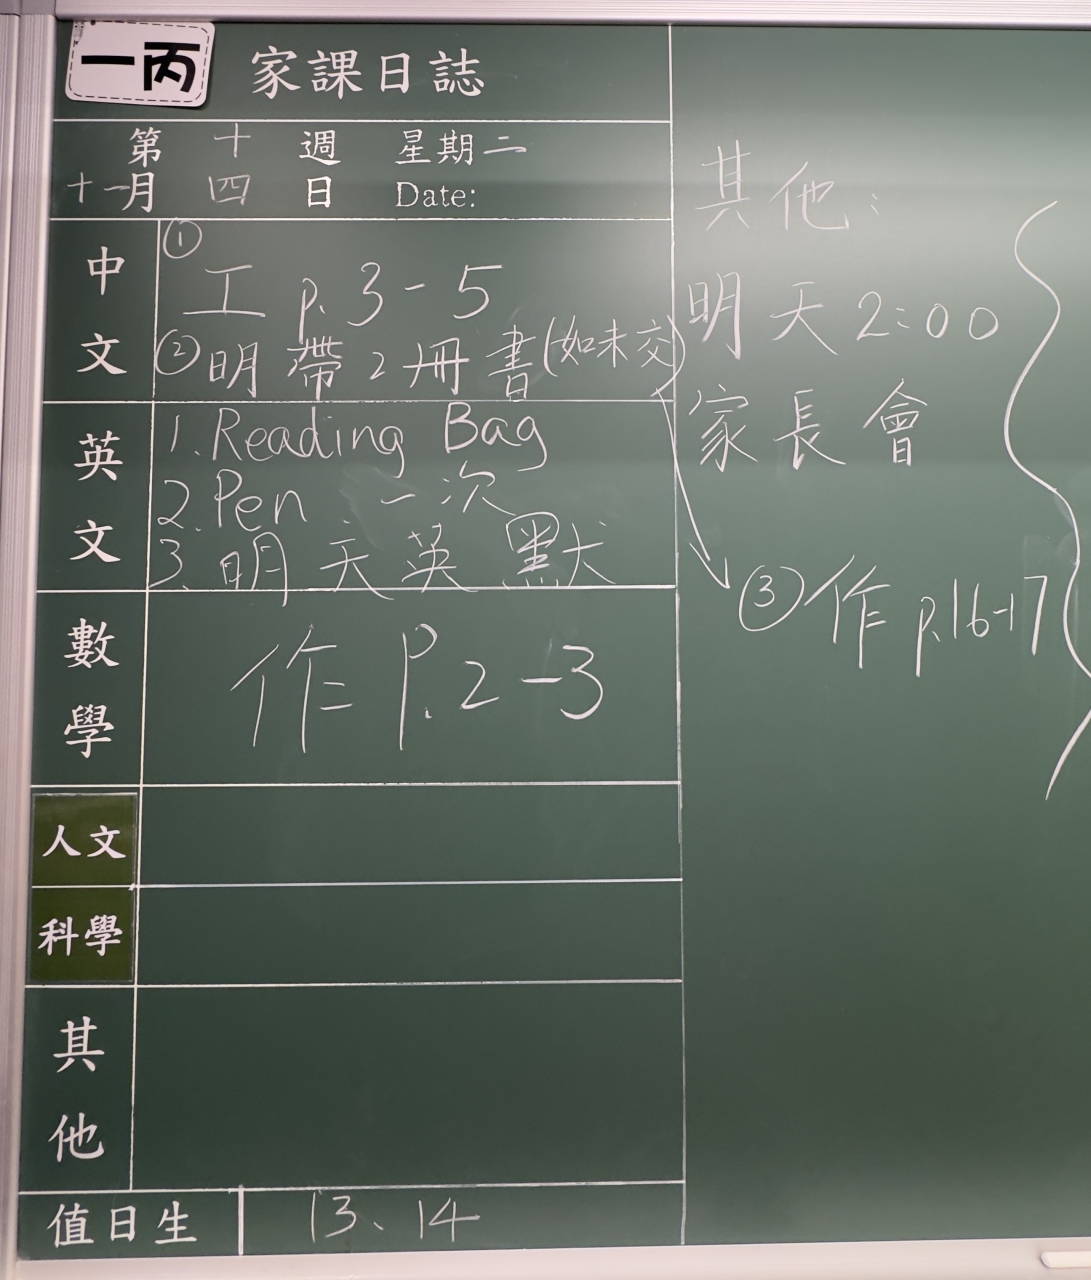 一丙 家課日誌
第 十 週 星期二
十一月 四 日 Date:
中文
① 工 p. 3-5
② 明帶2冊書(如未交)
③ 作 p.16-17
英文
1. Reading Bag
2. Pen 一次
3. 明天英默
數學
作 P.2-3
人文
科學
其他
值日生 13、14
其他：
明天2:00
家長會